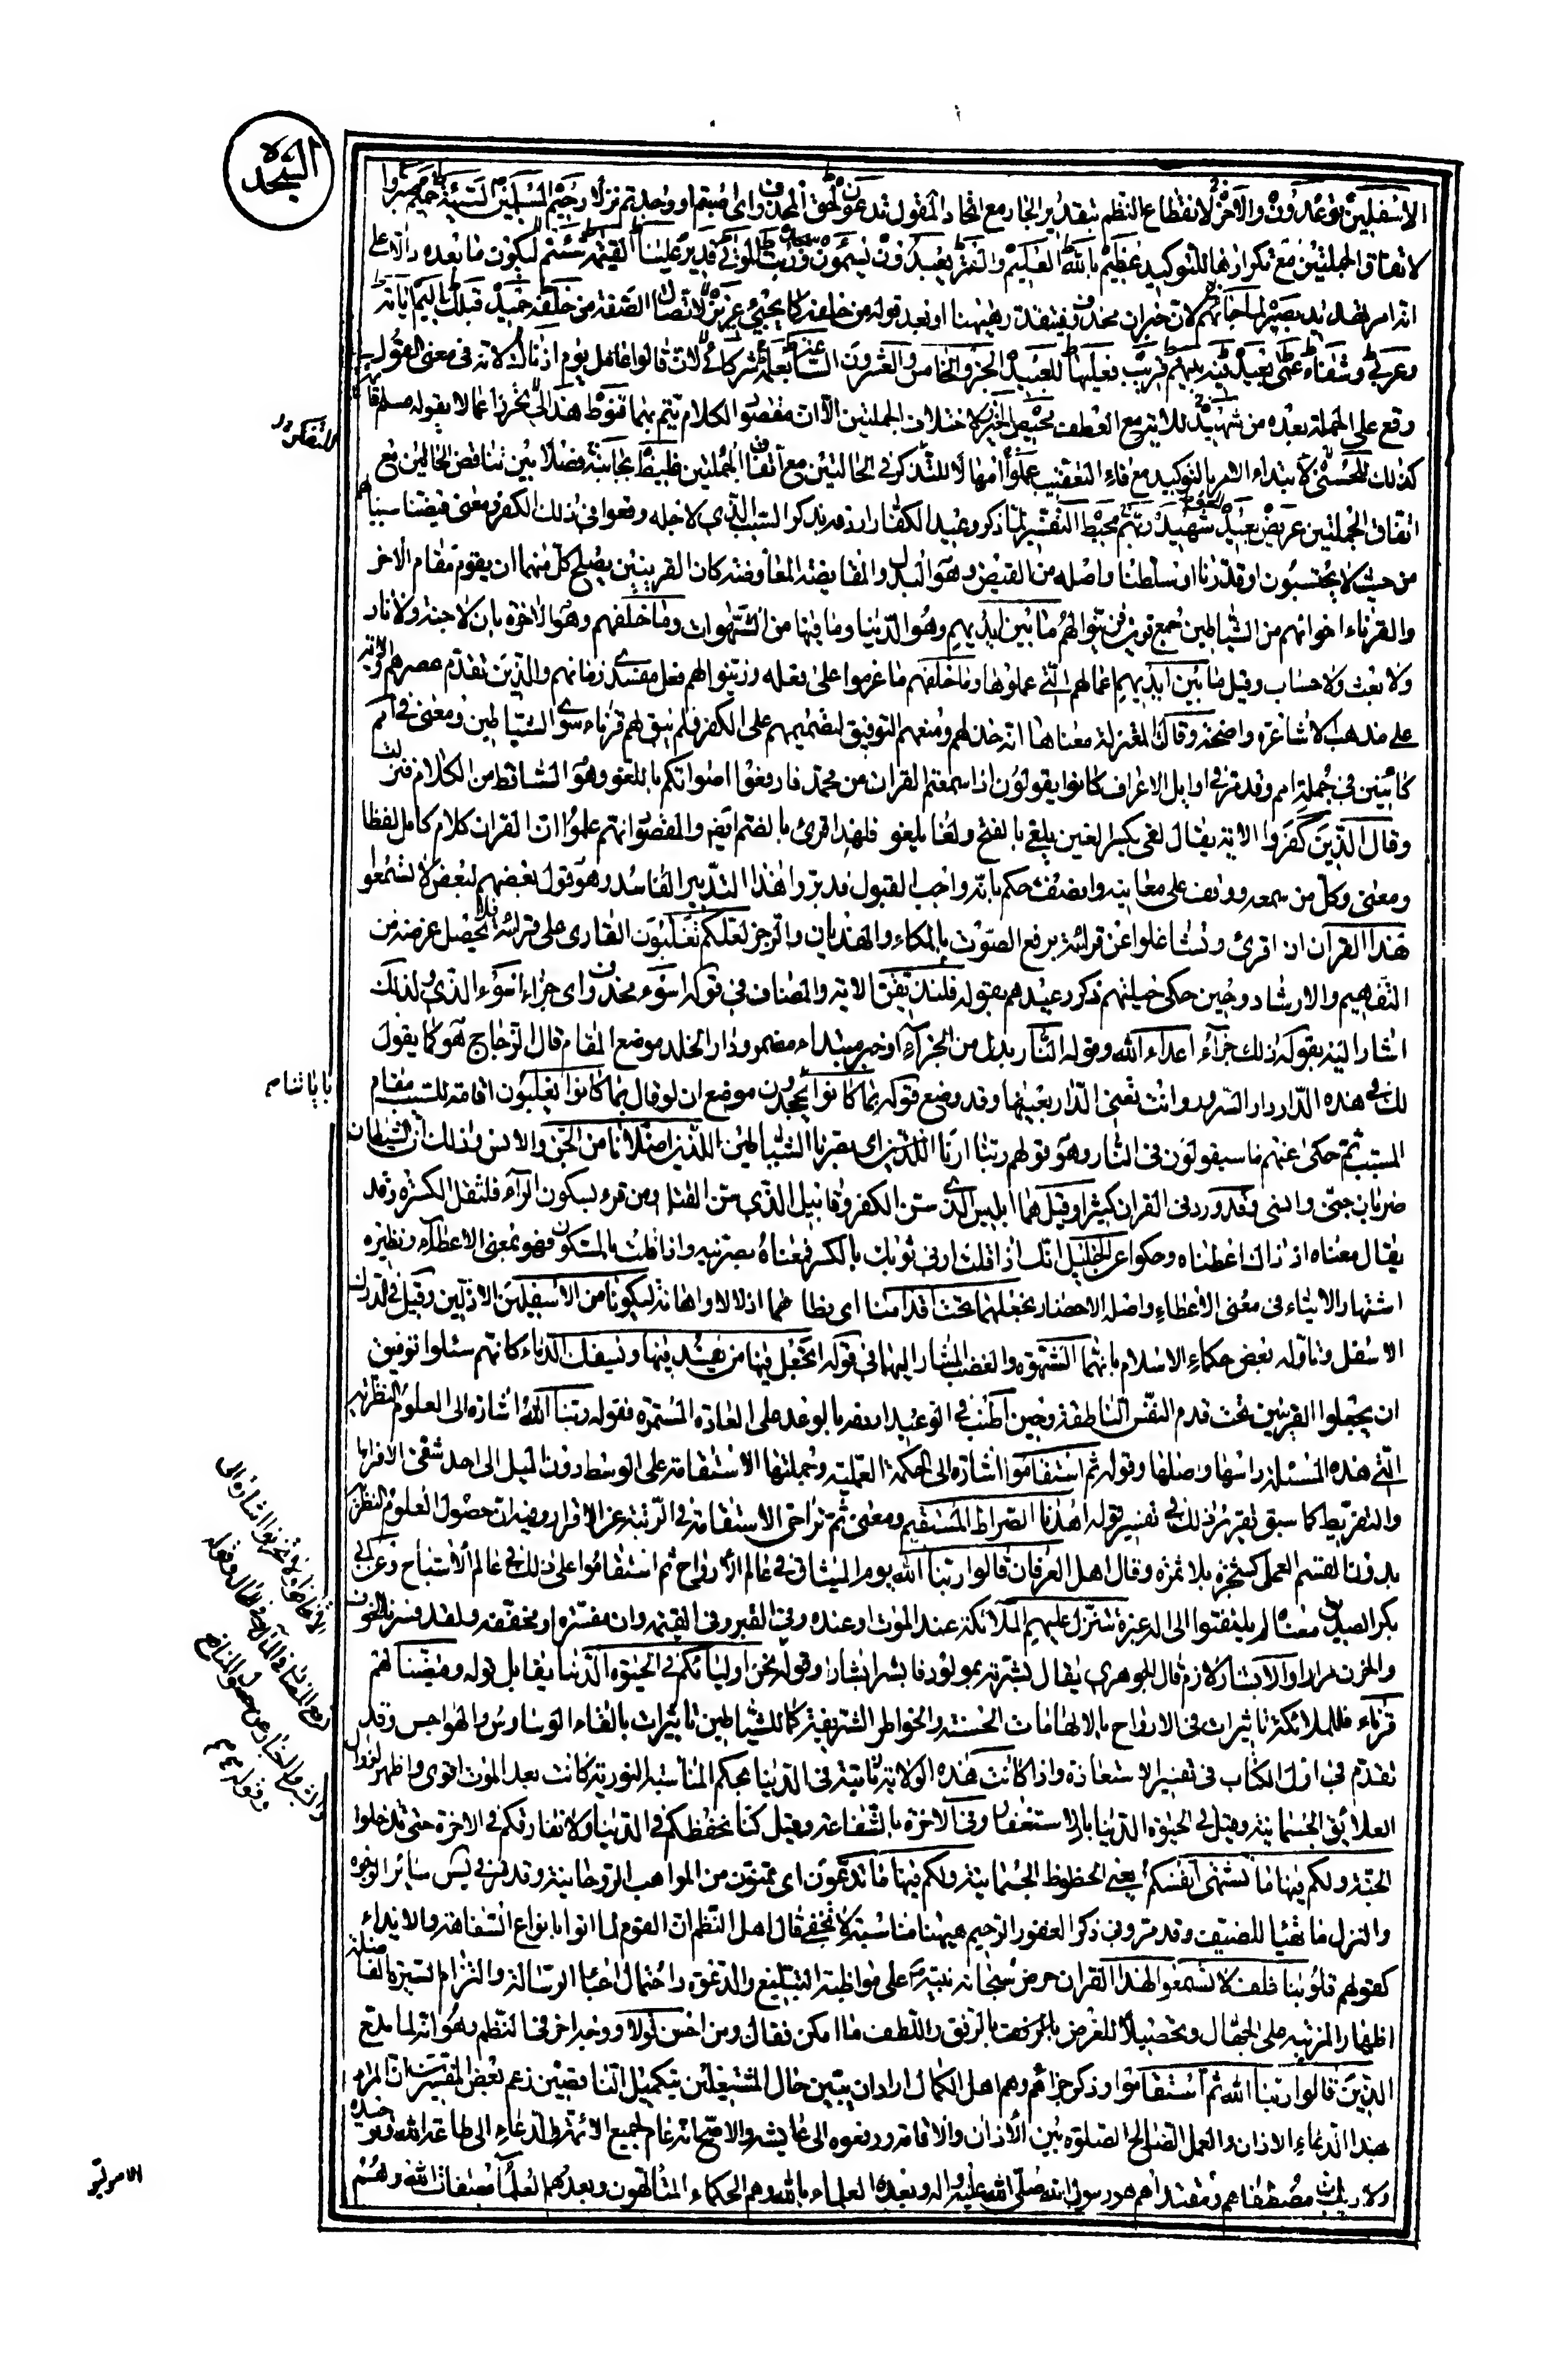 السجدة
الاسفلين توعدون والآخرة لانقطاع النظم بتقدير الجار مع اتحاد المقول تدعون لحق المحذوف اى اصبتم او وجدتم نزلا رحيم المسلمين السيئة حميم صبروا
لاتفاق الجملتين مع تكرار انما للتوكيد عظيم بالله العليم والقمر يعبدون يسئمون وربت الموتى قدير علينا القيمة شئتم لكون ما بعده دالا على
انه امر تهديد بصير لما جاءهم لان خبر ان محذوف فيتقدر ههنا او بعد قوله من خلفه كما يجيئ عزيز لاتصال الصفة من خلفه حميد قبلك اليم اياته
وعربى وشفاء عمى بعيد فيه بينهم مريب فعليها للعبيد الجزء الخامس والعشرون الساعة بعلمه شركائى لان قالوا عامل يوم اذناك لانه فى معنى القول
وقع على الجملة بعده من شهيد للاية مع العطف محيص الخير لاختلاف الجملتين الا ان مقصود الكلام يتم بهما قنوط هذا لى تحرزا عما لا يقوله مسلم قائمة
كذلك للحسنى لابتداء الامر بالتوكيد مع فاء التعقيب عملوا امهالا للتذكر فى الحالتين مع اتفاق الجملتين غليظ بجانبه فصلا بين تناقض الحالين مع
اتفاق الجملتين عريض بعيد الحق شهيد ربهم محيط التفسير لما ذكر وعيد الكفار اردفه بذكر السبب الذى لاجله وقعوا فى ذلك الكفر ومعنى قيضنا سببنا لهم
من حيث لا يحتسبون او قدرنا او سلطنا واصله من القيض وهو البدل والمقايضة المعاوضة كان القرينين يصلح كل منهما ان يقوم مقام الاخر
والقرناء اخوانهم من الشياطين جمع قرين فزينوا لهم ما بين ايديهم وهو الدنيا وما فيها من الشهوات وما خلفهم وهو الاخرة بان لا جنة ولا نار
ولا بعث ولا حساب وقيل ما بين ايديهم اعمالهم التى عملوها وما خلفهم ما عزموا على فعله وزينوا لهم فعل مفسدى زمانهم والذين تقدم عصرهم والاية
على مذهب الاشاعرة واضحة وقالت المعتزلة معناها انه خذلهم ومنعهم التوفيق لتصميمهم على الكفر فلم يبق لهم قرناء سوى الشياطين ومعنى فى امم
كائنين فى جملة امم وقد مر فى اوايل الاعراف كانوا يقولون اذا سمعتم القران من محمد فارفعوا اصواتكم باللغو وهو الساقط من الكلام فنزلت
وقال الذين كفروا الاية يقال لغى بكسر الغين يلغى بالفتح ولغا يلغو فلهذا قرئ بالضم ايضا والمقصود انهم علموا ان القران كلام كامل لفظا
ومعنى وكل من سمعه ووقف على معانيه وانصف حكم بانه واجب القبول فدبروا هذا التدبير الفاسد وهو قول بعضهم لبعض لا تسمعوا
لهذا القرآن اذا قرئ وتشاغلوا عن قرائته برفع الصوت بالمكاء والهذيان والرجز لعلكم تغلبون القارى على قرائته فلا يحصل غرضه من
التفهيم والارشاد وحين حكى حيلتهم ذكر وعيدهم بقوله فلنذيقن الاية والمضاف فى قوله اسوء محذوف اى جزاء اسوء الذى ولذلك
اشار اليه بقوله ذلك جزآء اعدآء الله وقوله النار بدل من الجزآء او خبر مبتداء مضمر ودار الخلد موضع المقام قال الزجاج هو كما يقول
لك فى هذه الدار دار السرور وانت تعنى الدار بعينها وقد وضع قوله بما كانوا يجحدون موضع ان لو قال بما كانوا يغلبون اقامة للسبب مقام
المسبب ثم حكى عنهم ما سيقولون فى النار وهو قولهم ربنا ارنا اللذين اى بصرنا الشياطين اللذين اضلانا من الجن والانس وذلك ان الشيطان
ضربان جنى وانسى وقد ورد فى القران كثيرا وقيل هما ابليس الذى سن الكفر وقابيل الذى سن القتل ومن قرء بسكون الرآء فلثقل الكسرة وقد
يقال معناه اذ ذاك اعطناه وحكوا عن الخليل انك اذا قلت ارنى ثوبك بالكسر فمعناه بصرنيه واذا قلت بالسكون فهو بمعنى الاعطاء ونظيره
اشتهار الايتاء فى معنى الاعطاء واصله الاحضار نجعلهما تحت اقدامنا اى نطاهما اذلالا واهانة ليكونا من الاسفلين الاذلين وقيل فى الدرك
الاسفل وتاوله بعض حكماء الاسلام بانهما الشهوة والغضب المشار اليهما فى قوله اتجعل فيها من يفسد فيها ويسفك الدماء كانهم سئلوا توفيق
ان يجعلوا القرينين تحت قدم النفس الناطقة وحين اطنب فى الوعيد اردفه بالوعد على العادة المستمرة فقوله ربنا الله اشارة الى العلوم النظرية
التى هذه المسئلة راسها واصلها وقوله ثم استقاموا اشارة الى الحكمة العملية وجملتها الاستقامة على الوسط دون الميل الى احد شقى الافراط
والتفريط كما سبق تقرير ذلك فى تفسير قوله اهدنا الصراط المستقيم ومعنى ثم تراخى الاستقامة فى الرتبة عن الاقرار وفيه ان حصول العلوم النظرية
بدون القسم العملى كشجرة بلا ثمرة وقال اهل العرفان قالوا ربنا الله يوم الميثاق فى عالم الارواح ثم استقاموا على ذلك فى عالم الاشباح وعن ابى
بكر الصديق معناه لم يلتفتوا الى اله غيره تتنزل عليهم الملائكة عند الموت او عنده وفى القبر وفى القيمة وان مفسرة او مخففة ولقد فسرنا الخوف
والحزن مرارا والابشار لازم قال الجوهرى يقال بشرته بمولود فابشر ابشارا وقوله نحن اولياؤكم فى الحيوة الدنيا يقابل قوله وقيضنا لهم
قرناء فللملائكة تاثيرات فى الارواح بالالهامات الحسنة والخواطر الشريفة كما للشياطين تاثيرات بالقاء الوساوس والهواجس وقد
تقدم فى اول الكتاب فى تفسير الاستعاذة واذا كانت هذه الولاية ثابتة فى الدنيا بحكم المناسبة النورية كانت بعد الموت اقوى واظهر لزوال
العلائق الجسمانية وقيل فى الحيوة الدنيا بالاستغفار وفى الاخرة بالشفاعة وقيل كنا نحفظكم فى الدنيا ولا نفارقكم فى الاخرة حتى تدخلوا
الجنة ولكم فيها ما تشتهى انفسكم يعنى الحظوظ الجسمانية ولكم فيها ما تدعون اى تتمنون من المواهب الروحانية وقد مر فى يس سائر الوجوه
والنزل ما تهيا للضيف وقد مر وفى ذكر الغفور الرحيم ههنا مناسبة لا تخفى قال اهل النظم ان القوم لما اتوا بانواع السفاهة والايذاء
كقولهم قلوبنا غلف لا تسمعوا لهذا القران حرض سبحانه نبيه على مواظبة التبليغ والدعوة واحتمال اعباء الرسالة والتزام السيرة الفاضلة
اظهارا لمزيته على الجهال وتحصيلا للغرض بالرفق واللطف ما امكن فقال ومن احسن قولا ووجه اخر فى النظم وهو انه لما مدح
الذين قالوا ربنا الله ثم استقاموا وذكر جزاءهم وهم اهل الكمال اراد ان يبين حال المشتغلين بتكميل الناقصين زعم بعض المفسرين ان المراد
بهذا الدعاء الاذان والعمل الصالح الصلوة بين الاذان والاقامة ورفعوه الى عايشة والاصح انه عام لجميع الائمة والدعاة الى طاعة الله وتوحيده
ولا ريب ان مصطفاهم ومقتداهم هو رسول الله صلى الله عليه واله وبعده العلماء بالله وهم الحكماء المتالهون وبعدهم العلماء بصفات الله وهم